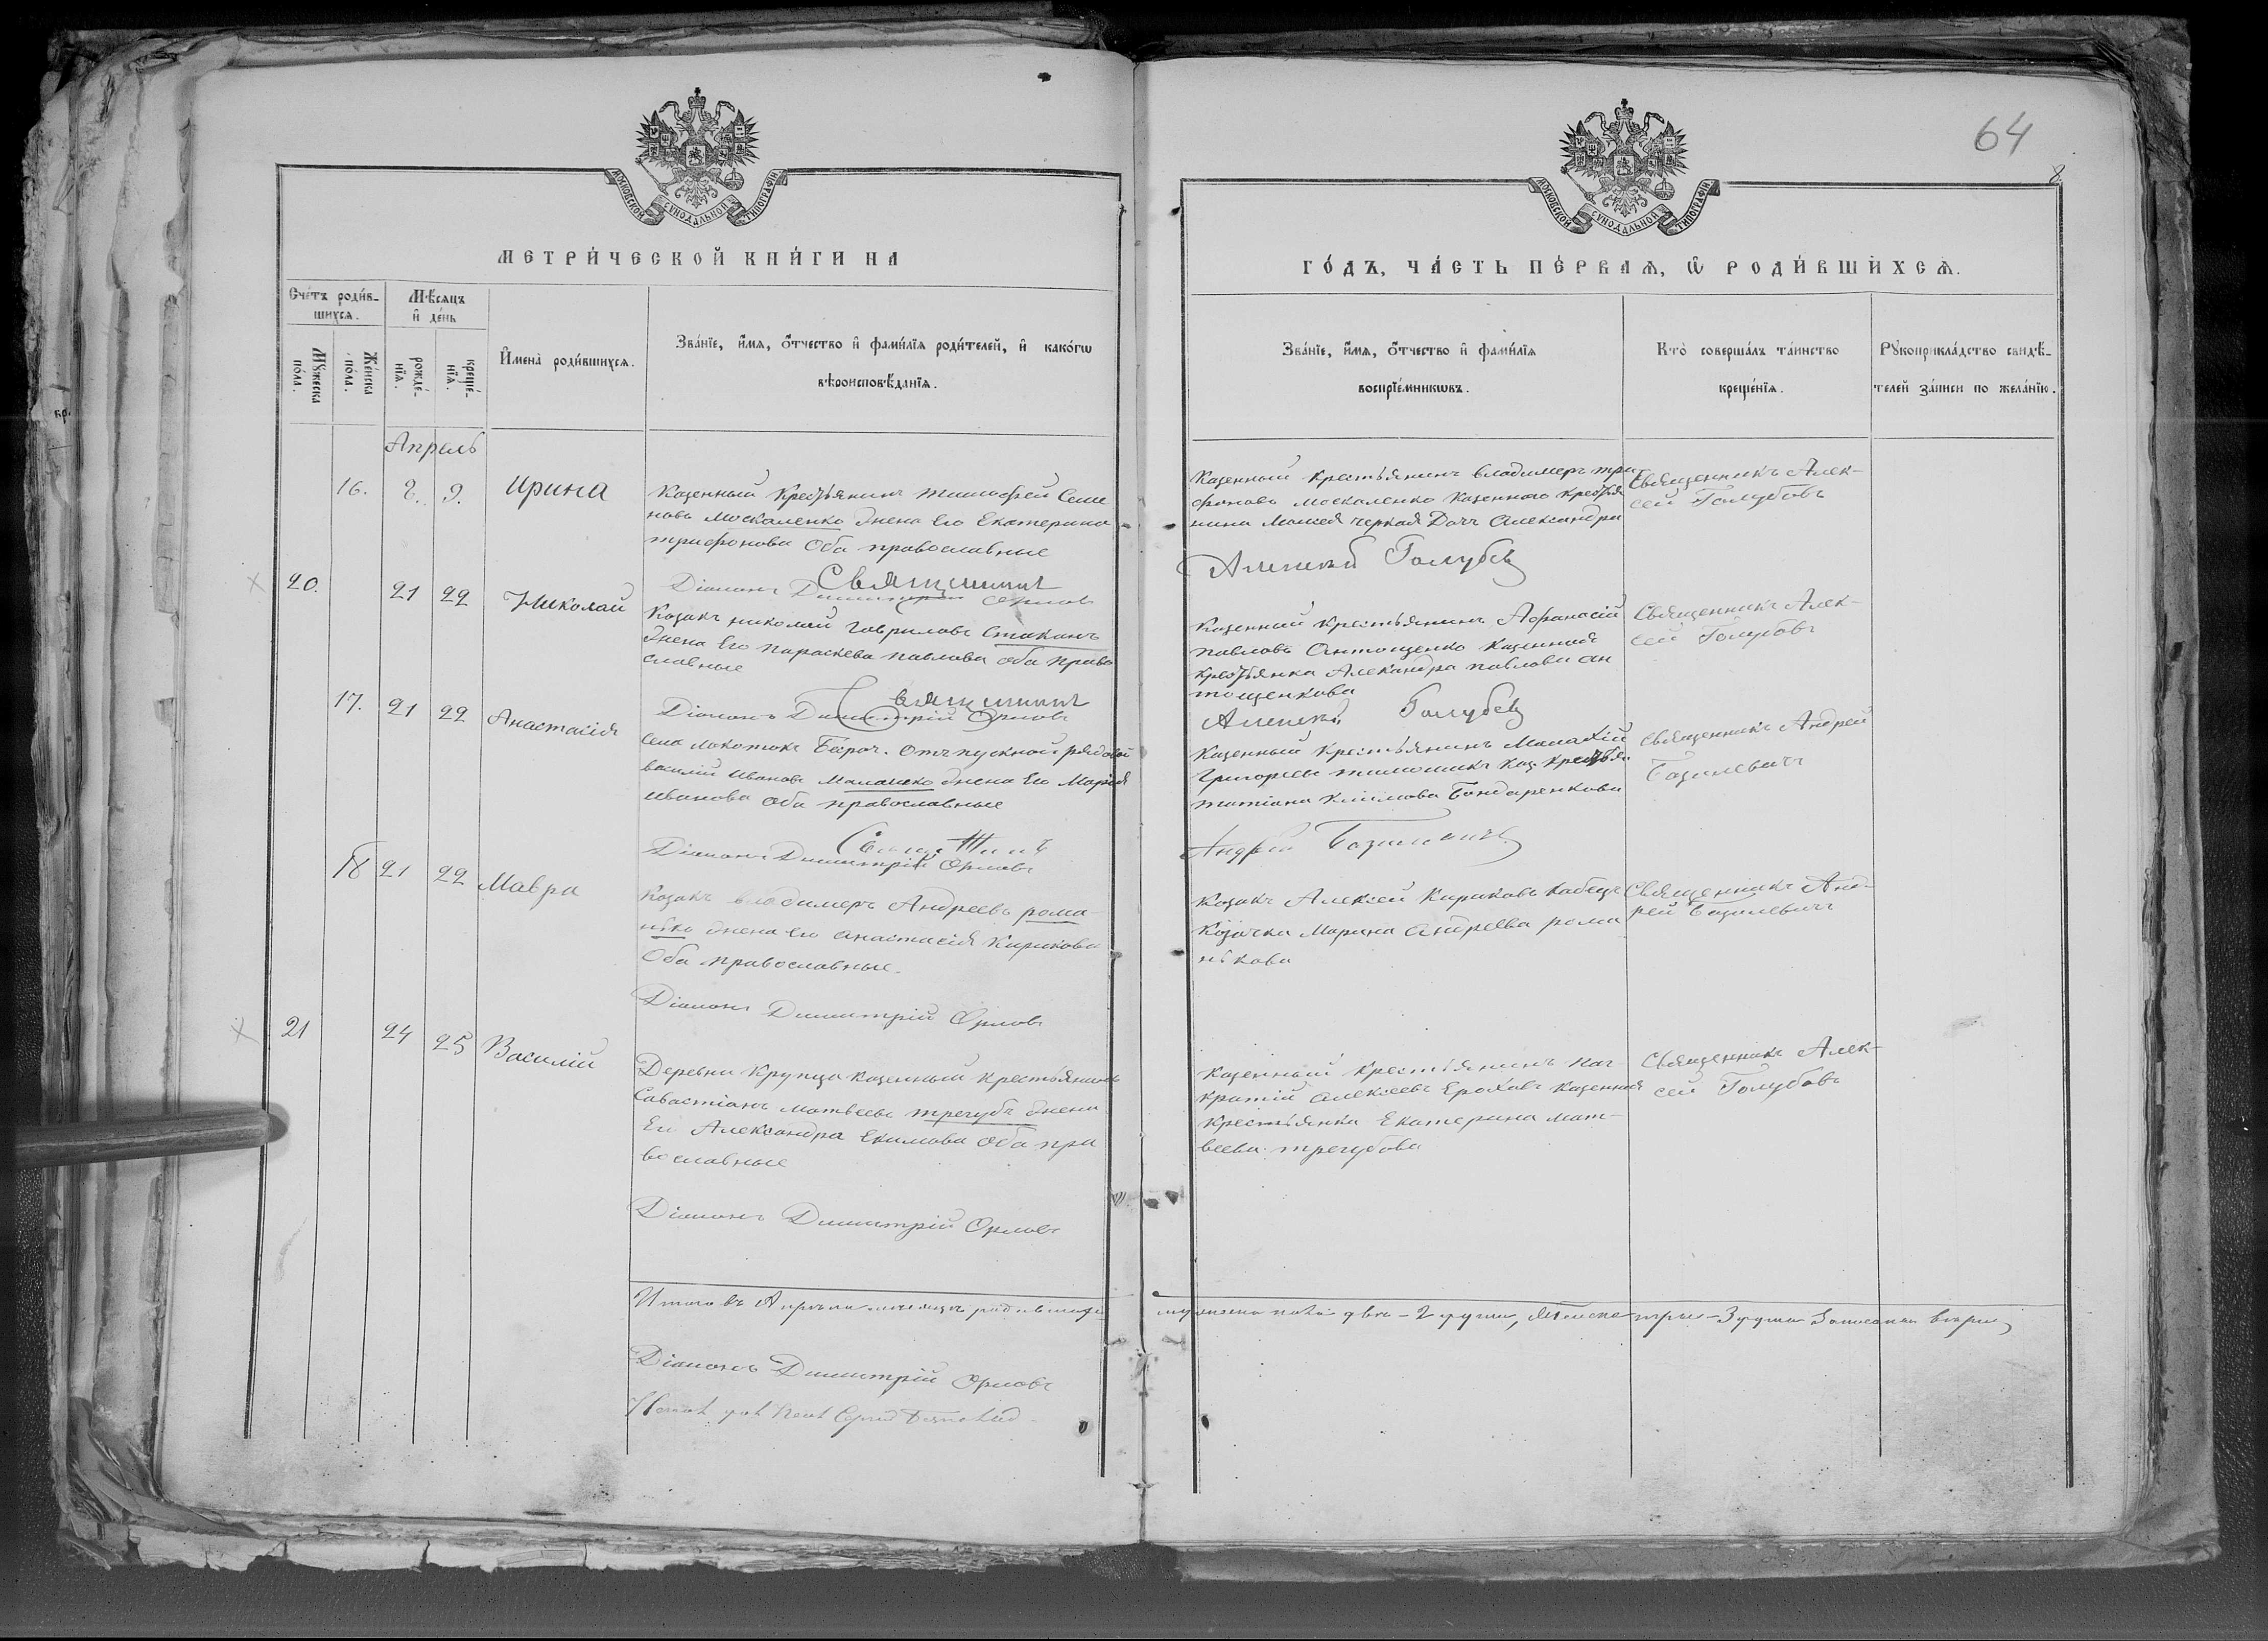 64
8.
МОСКОВСКОЙ СѴНОДАЛЬНОЙ ТИПОГРАФІИ
МОСКОВСКОЙ СѴНОДАЛЬНОЙ ТИПОГРАФІИ
МЕТРИ́ЧЕСКОЙ КНИ́ГИ НА
ГО́ДЪ, ЧА́СТЬ ПЕ́РВАѦ, Ѡ҆ РОДИ́ВШИХСѦ.
Сче́тъ роди́в-
шихсѧ.
Мꙋ́жеска по́ла.
Же́нска по́ла.
Мѣ́сѧцъ
и҆ де́нь
рожде́-нїѧ.
креще́-нїѧ.
И҆мена̀ роди́вшихсѧ.
Зва́нїе, и҆́мѧ, ѻ҆́тчество и҆ фами́лїѧ роди́телей, и҆ како́гѡ
вѣроисповѣ́данїѧ.
Зва́нїе, и҆́мѧ, ѻ҆́тчество и҆ фами́лїѧ
воспрїе́мникѡвъ.
Кто̀ соверша́лъ та́инство
креще́нїѧ.
Рꙋкоприкла́дство свидѣ́-
телей за́писи по жела́нїю.
Апрель
16. 8. 9. Ирина
Казенный Крестьянинъ Тимофей Семе
новъ Москаленко жена его Екатерина
трифонова Оба православные
Казенный крестьянинъ владимеръ три
фоновъ Москаленко казенного крестья
нина Моисея черная Дочь Александра
Священникъ Алек-
сей Голубовъ
Священникъ Алексѣй Голубовъ
Діаконъ Димитрій Орловъ
20. 21 22 Николай
Козакъ николай Гавриловъ Стаканъ
жена его параскева павлова оба право
славные
Казенный крестьянинъ Афанасій
павловъ Антощенко казенная
крестьянка Александра павлова ан
тощенкова
Священникъ Алек-
сей Голубовъ
Священникъ Алексѣй Голубовъ
Діаконъ Димитрій Орловъ
17. 21 22 Анастасія
села локотокъ отпускной рядовой
василій Ивановъ Малашко жена его Марія
иванова оба православные
Казенный крестьянинъ Малахій
Григорьевъ каз. крестья.
татіана климова Бондаренкова
Священникъ Андрей
Базилевичъ
Андрей Базилевичъ
Діаконъ Димитрій Орловъ
18 21 22 Мавра
Козакъ владимеръ Андреевъ рома-
нько жена его анастасія Кирикова
Оба православные.
Козакъ Алексей Кириковъ
Козачка Марина андреева рома
нькова
Священникъ Анд-
рей Базилевичъ
Діаконъ Димитрій Орловъ
21 24 25 Василій
Деревни Крупца казенный крестьянинъ
Савастіанъ матвеевъ трегубъ жена
Его Александра Екимова Оба пра
вославные
Казенный крестьянинъ пан
кратій алексеевъ Ероховъ казенная
крестьянка Екатерина мат-
веева трегубова
Священникъ Алек-
сей Голубовъ
Діаконъ Димитрій Орловъ
Итого въ Апрѣли мѣсяцѣ родившихся
мужеска пола двѣ - 2 души, женска три - 3 души
Діаконъ Димитрій Орловъ